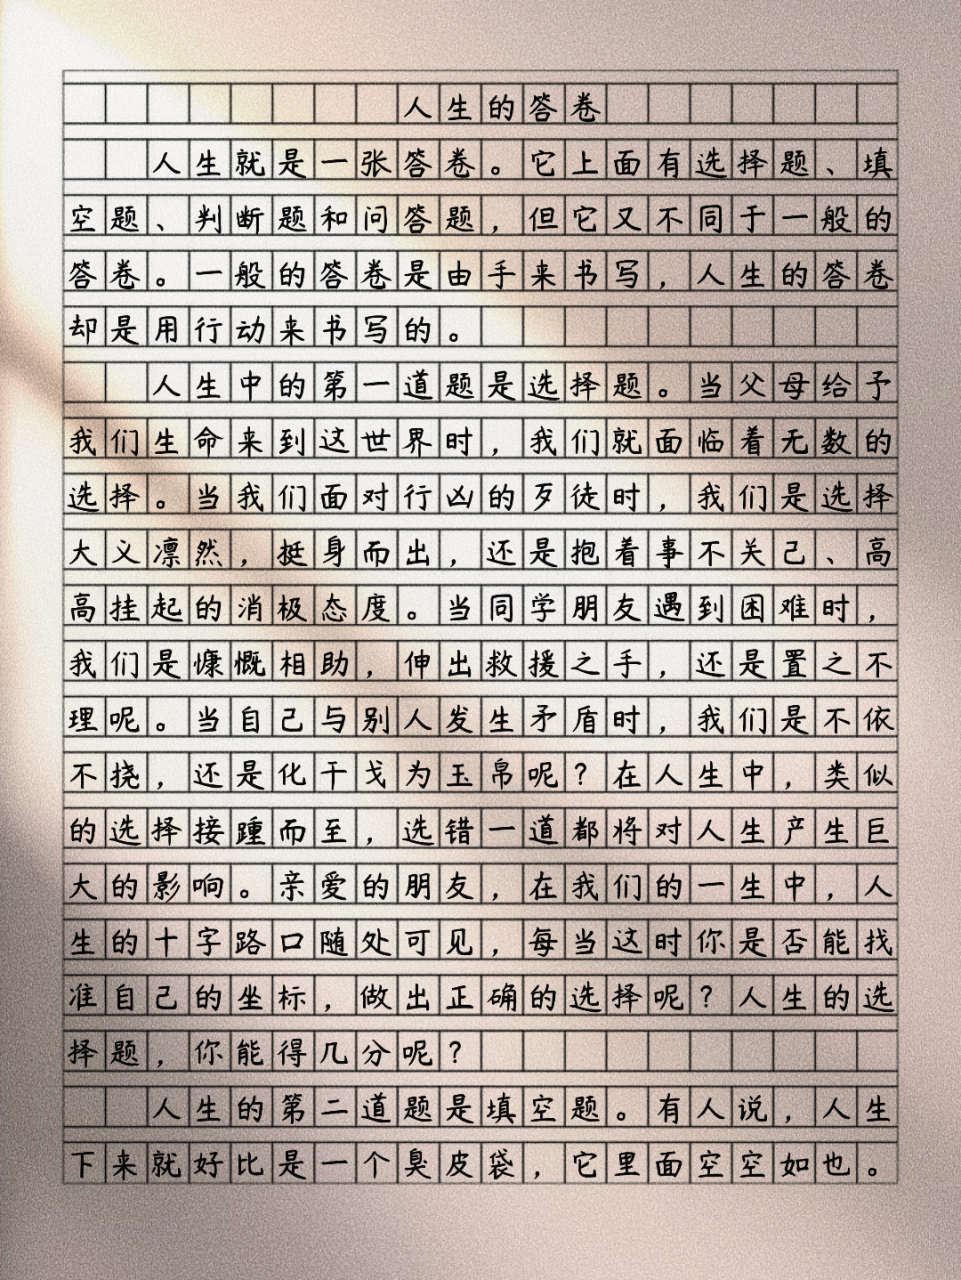 人生的答卷
人生就是一张答卷。它上面有选择题、填
空题、判断题和问答题，但它又不同于一般的
答卷。一般的答卷是由手来书写，人生的答卷
却是用行动来书写的。
人生中的第一道题是选择题。当父母给予
我们生命来到这世界时，我们就面临着无数的
选择。当我们面对行凶的歹徒时，我们是选择
大义凛然，挺身而出，还是抱着事不关己、高
高挂起的消极态度。当同学朋友遇到困难时，
我们是慷慨相助，伸出救援之手，还是置之不
理呢。当自己与别人发生矛盾时，我们是不依
不挠，还是化干戈为玉帛呢？在人生中，类似
的选择接踵而至，选错一道都将对人生产生巨
大的影响。亲爱的朋友，在我们的一生中，人
生的十字路口随处可见，每当这时你是否能找
准自己的坐标，做出正确的选择呢？人生的选
择题，你能得几分呢？
人生的第二道题是填空题。有人说，人生
下来就好比是一个臭皮袋，它里面空空如也。